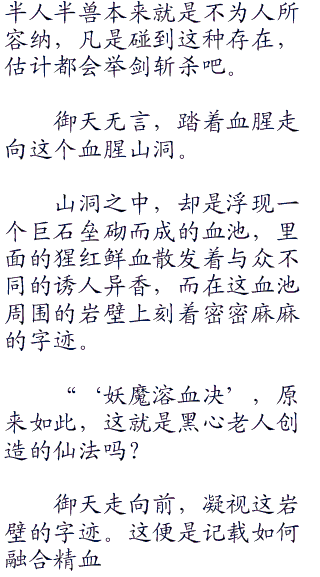 半人半兽本来就是不为人所
容纳，凡是碰到这种存在，
估计都会举剑斩杀吧。
御天无言，踏着血腥走
向这个血腥山洞。
山洞之中，却是浮现一
个巨石垒砌而成的血池，里
面的猩红鲜血散发着与众不
同的诱人异香，而在这血池
周围的岩壁上刻着密密麻麻
的字迹。
“‘妖魔溶血决’，原
来如此，这就是黑心老人创
造的仙法吗？
御天走向前，凝视这岩
壁的字迹。这便是记载如何
融合精血